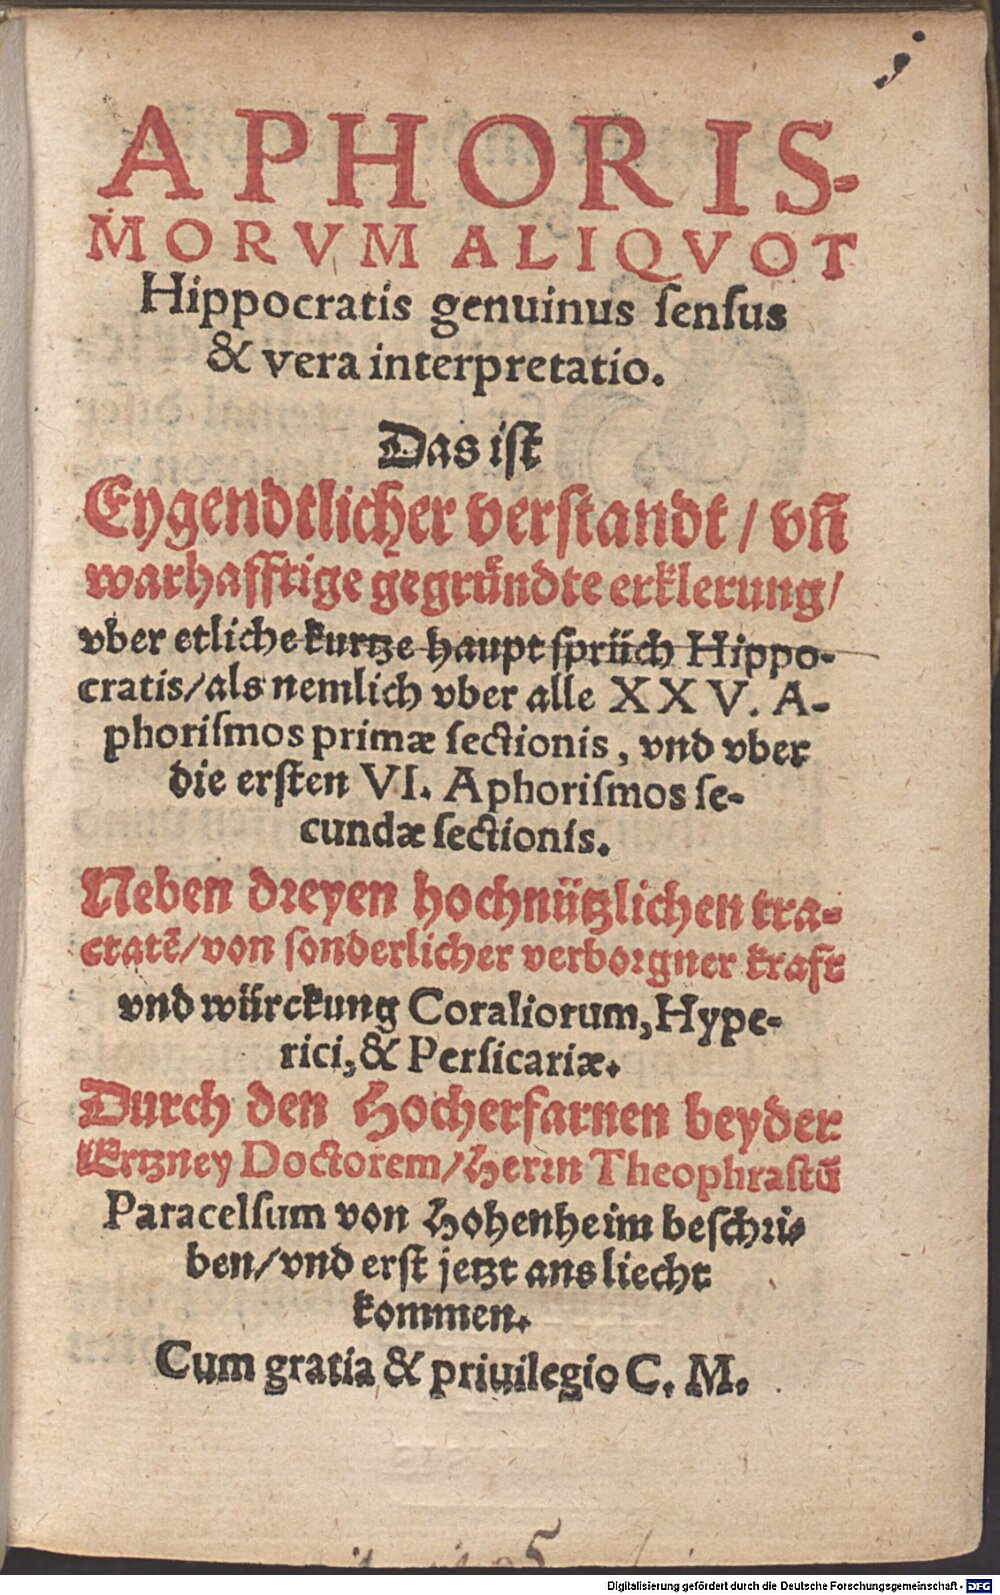 APHORIS-
MORVM ALIQVOT
Hippocratis genuinus ſenſus
& vera interpretatio.
Das iſt
Eygendtlicher verſtandt / vñ
warhafftige gegründte erklerung/
vber etliche kurtze haupt ſprüch Hippo-
cratis/als nemlich vber alle XXV. A-
phoriſmos primæ ſectionis, vnd vber
die erſten VI. Aphoriſmos ſe-
cundæ ſectionis.
Neben dreyen hochnützlichen tra-
ctatẽ/von ſonderlicher verborgner kraft
vnd würckung Coraliorum, Hype-
rici, & Perſicariæ.
Durch den Hocherfarnen beyder
Ertzney Doctorem/Herrn Theophraſtũ
Paracelſum von Hohenheim beſchri-
ben/vnd erſt jetzt ans liecht
kommen.
Cum gratia & priuilegio C. M.
Digitalisierung gefördert durch die Deutsche Forschungsgemeinschaft - DFG